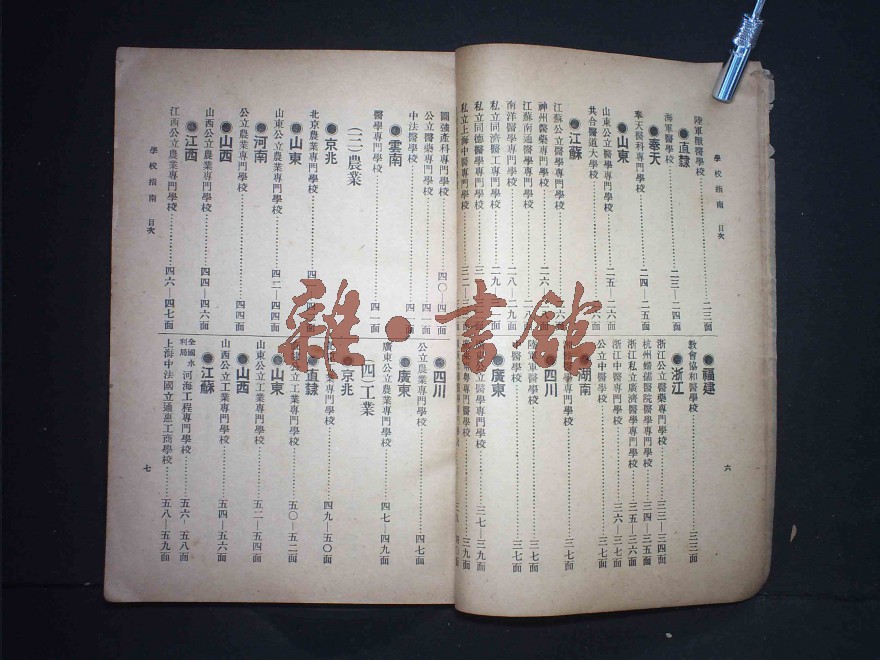 學校指南 目次
陸軍獸醫學校 二三面
●直隸
海軍醫學校 二三—二四面
●奉天
奉天醫科專門學校 二四—二五面
●山東
山東公立醫學專門學校 二五—二六面
共合醫道大學校
●江蘇
江蘇公立醫學專門學校
神州醫藥專門學校
江蘇南通醫學專門學校
南洋醫學專門學校 二八—二九面
私立同濟醫工專門學校
私立同德醫學專門學校
私立上海中醫專門學校
●福建
教會協和醫學校 三三面
●浙江
浙江公立醫藥專門學校 三三—三四面
杭州耀儒醫院醫學專門學校 三四—三五面
浙江私立廣濟醫學專門學校 三五—三六面
浙江中醫專門學校 三六—三七面
公立中醫學校 三七面
●湖南
學專門學校 三七面
●四川
陸軍軍醫學校 三七面
醫學校 三七面
●廣東
公立醫學專門學校 三七—三九面
六
圖強產科專門學校
公立醫藥專門學校 四一面
中法醫學校 四一面
●雲南
醫學專門學校 四一面
(三)農業
●京兆
北京農業專門學校
●山東
山東公立農業專門學校 四二—四四面
●河南
公立農業專門學校 四四面
●山西
山西公立農業專門學校 四四—四六面
●江西
江西公立農業專門學校 四六—四七面
●四川
公立農業專門學校 四七面
●廣東
廣東公立農業專門學校 四七—四九面
(四)工業
●京兆
業專門學校 四九—五〇面
●直隸
公立工業專門學校 五〇—五二面
●山東
山東公立工業專門學校 五二—五四面
●山西
山西公立工業專門學校 五四—五六面
●江蘇
全國水利局 河海工程專門學校 五六—五八面
上海中法國立通惠工商學校 五八—五九面
學校指南 目次
七
雜·書館